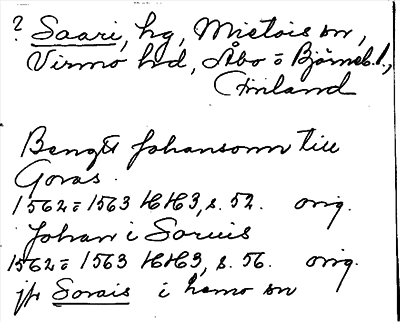 ? Saari, hg, Mietois sn,
Virmo hd, Åbo = Björneb. l.,
Finland
Bengt Johansonn till
Goras.
1562 = 1563 HH3, s. 52. orig.
Johan i Soruis
1562 = 1563 HH3, s. 56. orig.
jfr Sorais i hemo sn